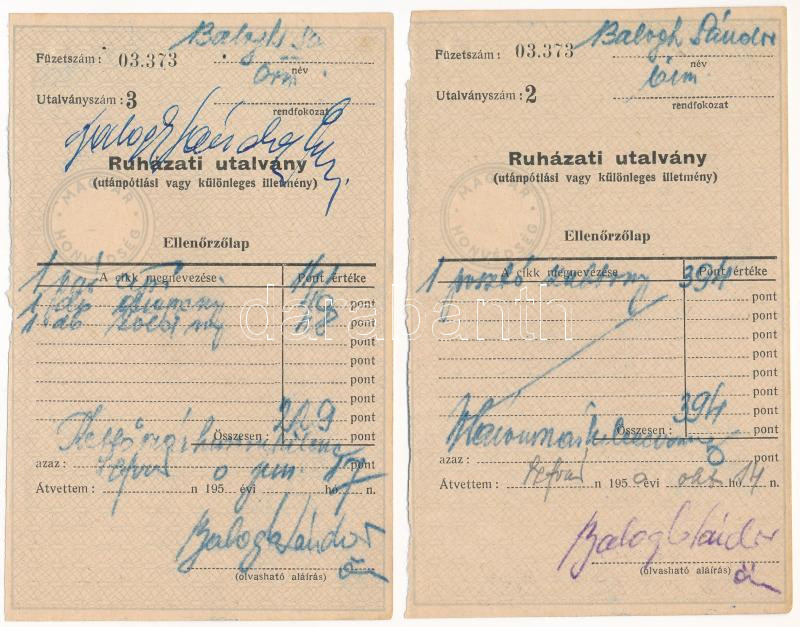 Balogh Sá
Füzetszám: 03.373
név
Utalványszám: 3
rendfokozat
Balogh Sándor
Ruházati utalvány
(utánpótlási vagy különleges illetmény)
MAGYAR HONVÉDSÉG
Ellenőrzőlap
A cikk megnevezése Pont értéke
1 pár
1 db pont
1 db pont
pont
pont
pont
pont
Összesen: 229 pont
azaz: pont
Átvettem: n 1950 évi jun. hó 17 n.
Balogh Sándor
(olvasható aláírás)
Balogh Sándor
Füzetszám: 03.373
név
Utalványszám: 2
rendfokozat
Ruházati utalvány
(utánpótlási vagy különleges illetmény)
MAGYAR HONVÉDSÉG
Ellenőrzőlap
A cikk megnevezése Pont értéke
1 posztó zubbony 394
pont
pont
pont
pont
pont
pont
Összesen: 394 pont
azaz: pont
Átvettem: n 1950 évi okt hó 14 n.
Balogh Sándor
(olvasható aláírás)
darabanth